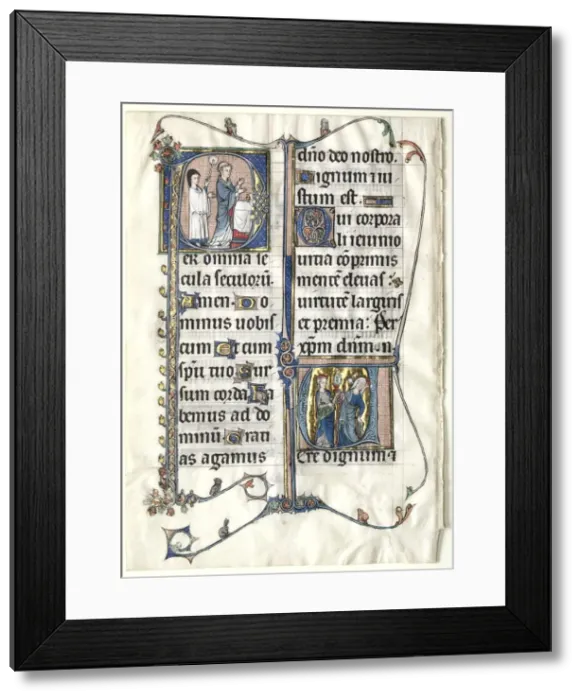 er omnia se
cula seculorū.
Amen. Do
minus uobiſ
cum Et cum
ſpū tuo Sur
sum corda Ha
bemus ad do
minū Grati
as agamus
dño deo nostro.
Dignum iu
stum est.
Qui corpora
li ieiunio
uitia cōprimis
mentē eleuas:
uirtutē largiris
et premia: Per
xp̄m dñm n
ere dignum ⁊